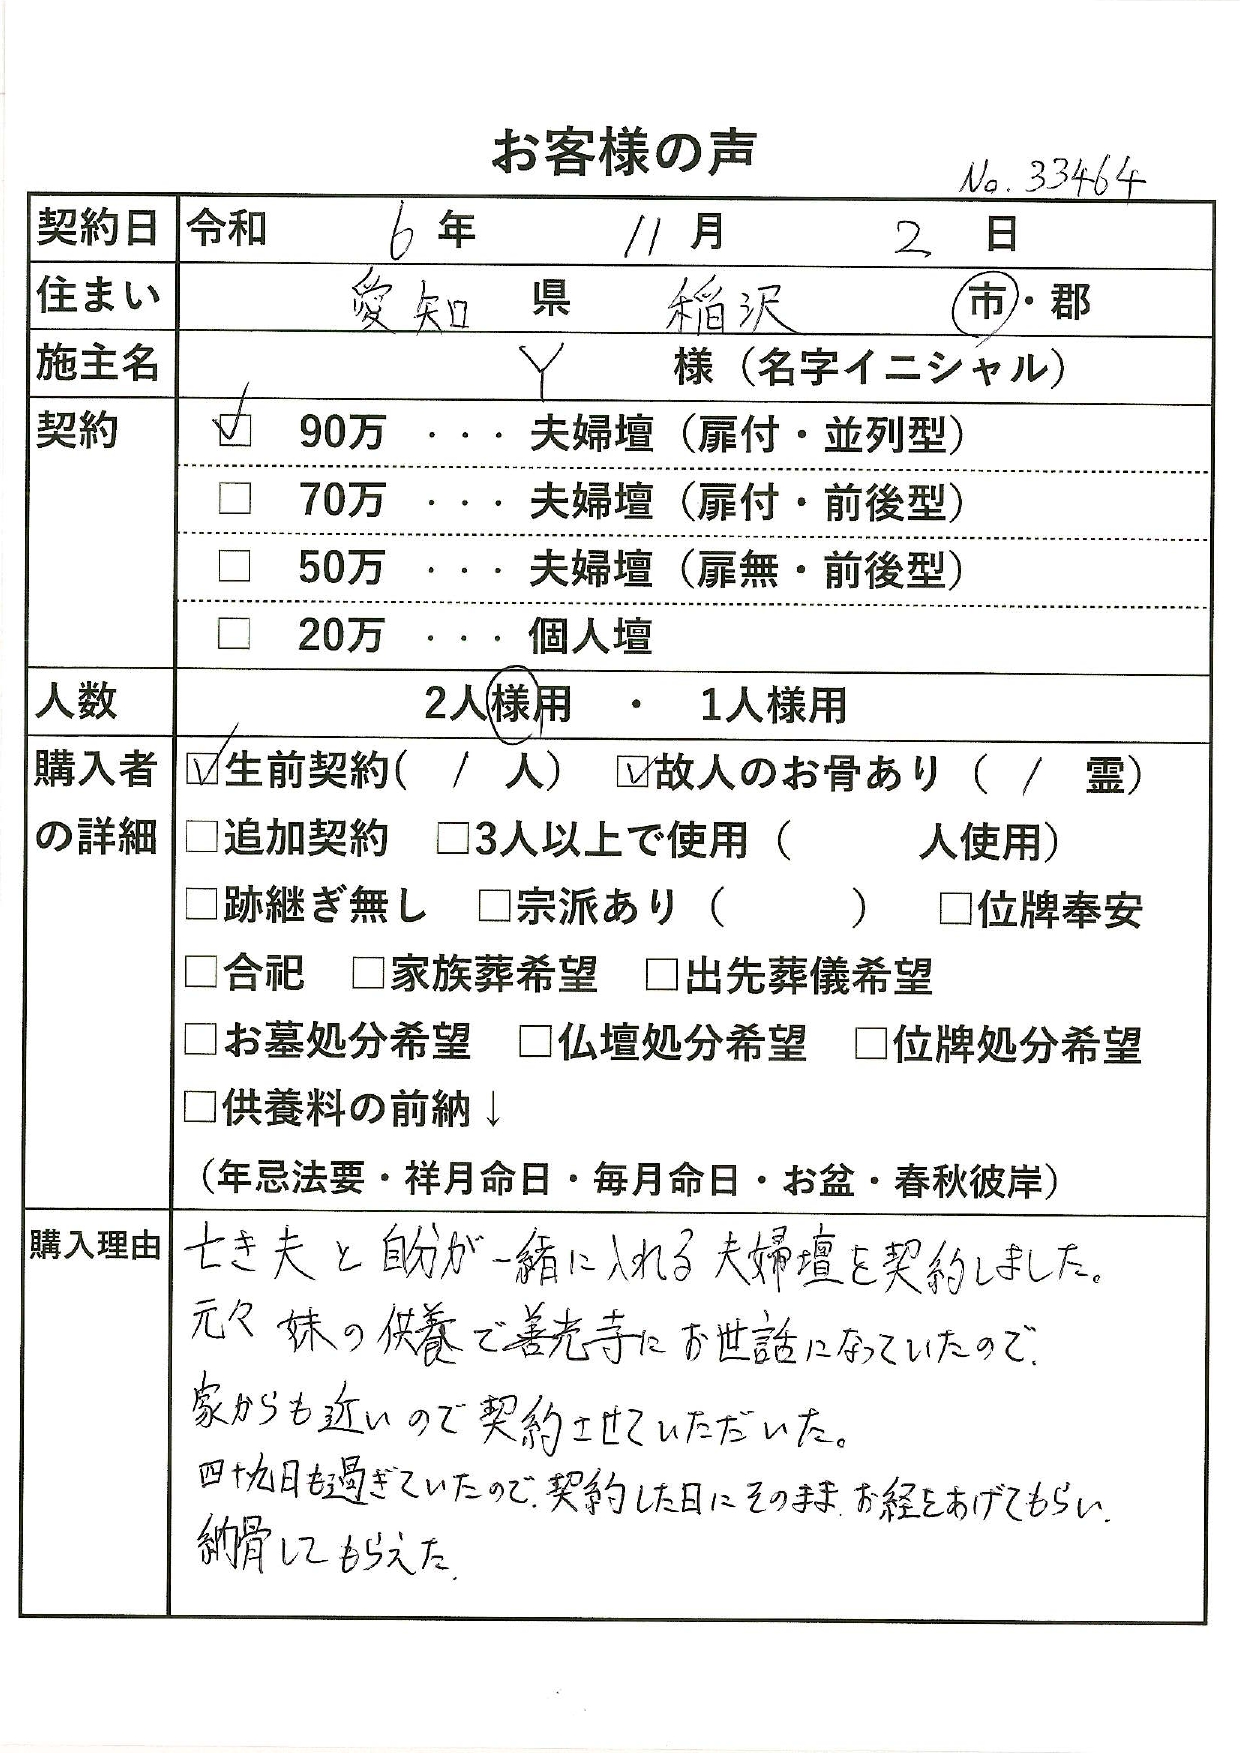 お客様の声
No. 33464
契約日 令和 6 年 11 月 2 日
住まい 愛知 県 稲沢 市・郡
施主名 Y 様（名字イニシャル）
契約 ☑ 90万 ・・・ 夫婦壇（扉付・並列型）
□ 70万 ・・・ 夫婦壇（扉付・前後型）
□ 50万 ・・・ 夫婦壇（扉無・前後型）
□ 20万 ・・・ 個人壇
人数 2人様用 ・ 1人様用
購入者 ☑生前契約( / 人） ☑故人のお骨あり（ / 霊）
の詳細 □追加契約 □3人以上で使用（ 人使用）
□跡継ぎ無し □宗派あり（ ） □位牌奉安
□合祀 □家族葬希望 □出先葬儀希望
□お墓処分希望 □仏壇処分希望 □位牌処分希望
□供養料の前納↓
（年忌法要・祥月命日・毎月命日・お盆・春秋彼岸）
購入理由 亡き夫と自分が一緒に入れる夫婦壇を契約しました。
元々妹の供養で善光寺にお世話になっていたので、
家からも近いので契約させていただいた。
四十九日も過ぎていたので、契約した日にそのまま、お経をあげてもらい、
納骨してもらえた。